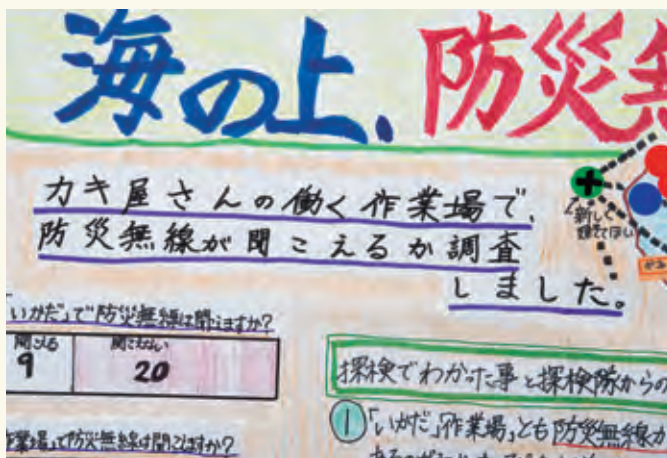 海の上、防災無
カキ屋さんの働く作業場で、
防災無線が聞こえるか調査
しました。
新しく
建ててほしい
「いかだ」で防災無線は聞こえますか?
聞こえる 聞こえない
9 20
作業場」で防災無線は聞こえますか?
探検でわかった事と探検隊からの
① 「いかだ」「作業場」とも防災無線か